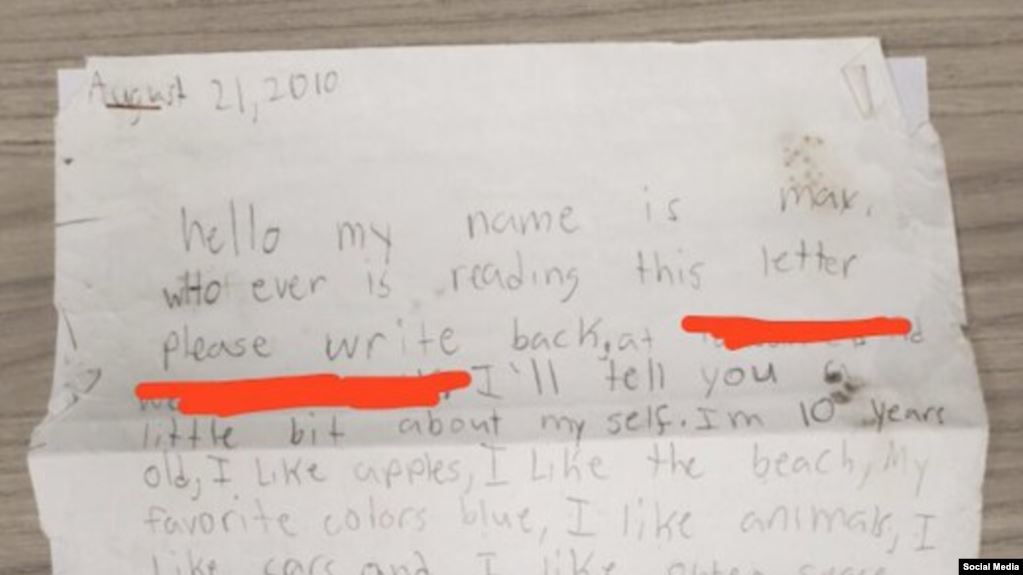 August 21, 2010
hello my name is max.
who ever is reading this letter
please write back, at
I'll tell you a
little bit about my self. Im 10 years
old, I Like apples, I Like the beach, My
favorite colors blue, I like animals, I
like cars and I like outer space
Social Media